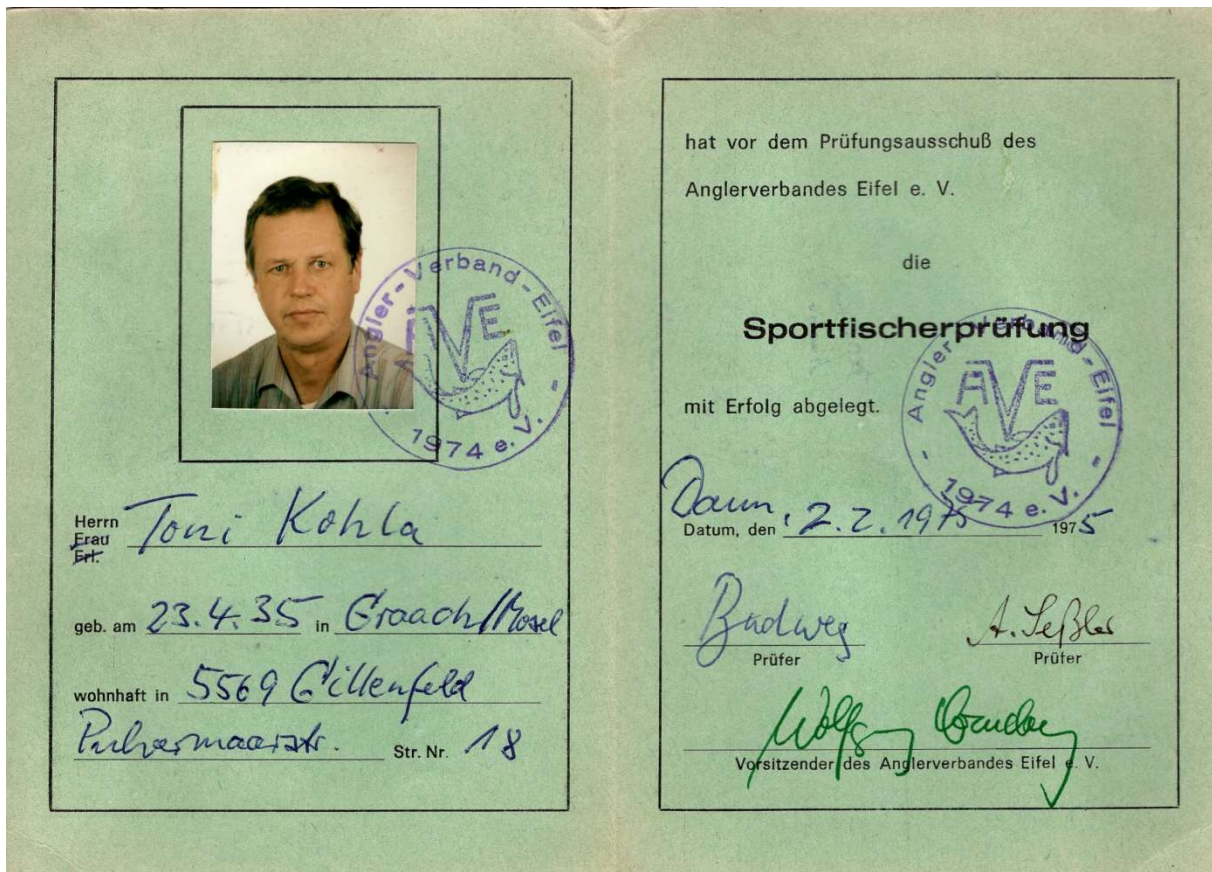 Angler-Verband-Eifel
AVE
1974 e. V.
Herrn
Frau
Frl.
Toni Kohla
geb. am 23.4.35 in Graach/Mosel
wohnhaft in 5569 Gillenfeld
Pulvermaarstr. Str. Nr. 18
hat vor dem Prüfungsausschuß des
Anglerverbandes Eifel e. V.
die
Sportfischerprüfung
mit Erfolg abgelegt.
Angler-Verband-Eifel
AVE
1974 e. V.
Daun,
Datum, den 2.2.1975 1975
Budweg A. Seßler
Prüfer Prüfer
Wolfgang
Vorsitzender des Anglerverbandes Eifel e. V.